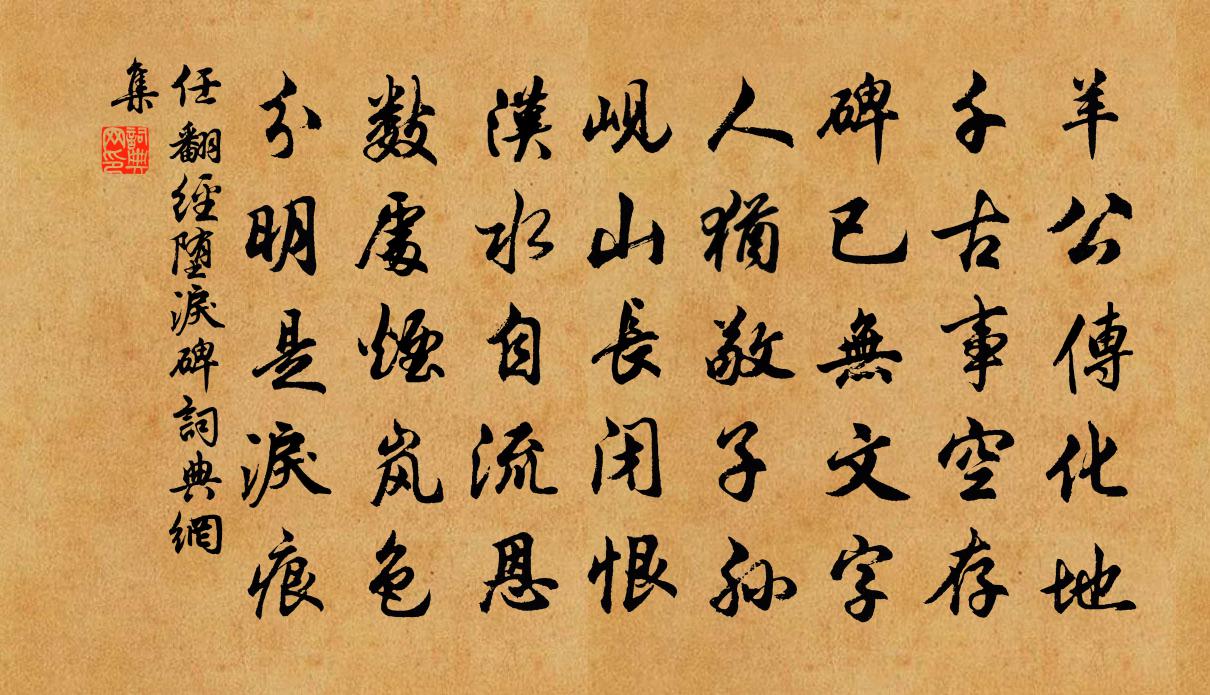 羊公傳化地
千古事空存
碑已無文字
人猶敬子孫
峴山長閉恨
漢水自流恩
數處煙嵐色
分明是淚痕
任翻經墮淚碑詞典網
集
詞典網印